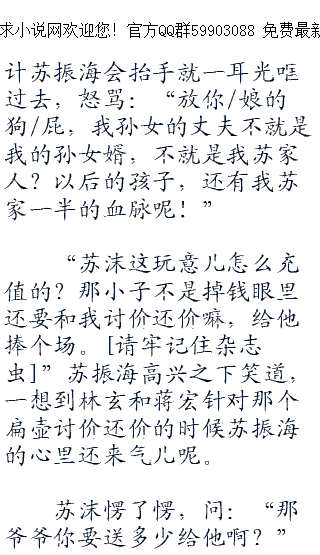 求小说网欢迎您！官方QQ群59903088 免费最新
计苏振海会抬手就一耳光哐
过去，怒骂：“放你/娘的
狗/屁，我孙女的丈夫不就是
我的孙女婿，不就是我苏家
人？以后的孩子，还有我苏
家一半的血脉呢！”
“苏沫这玩意儿怎么充
值的？那小子不是掉钱眼里
还要和我讨价还价嘛，给他
捧个场。[请牢记住杂志
虫]”苏振海高兴之下笑道，
一想到林玄和蒋宏针对那个
扁壶讨价还价的时候苏振海
的心里还来气儿呢。
苏沫愣了愣，问：“那
爷爷你要送多少给他啊？”